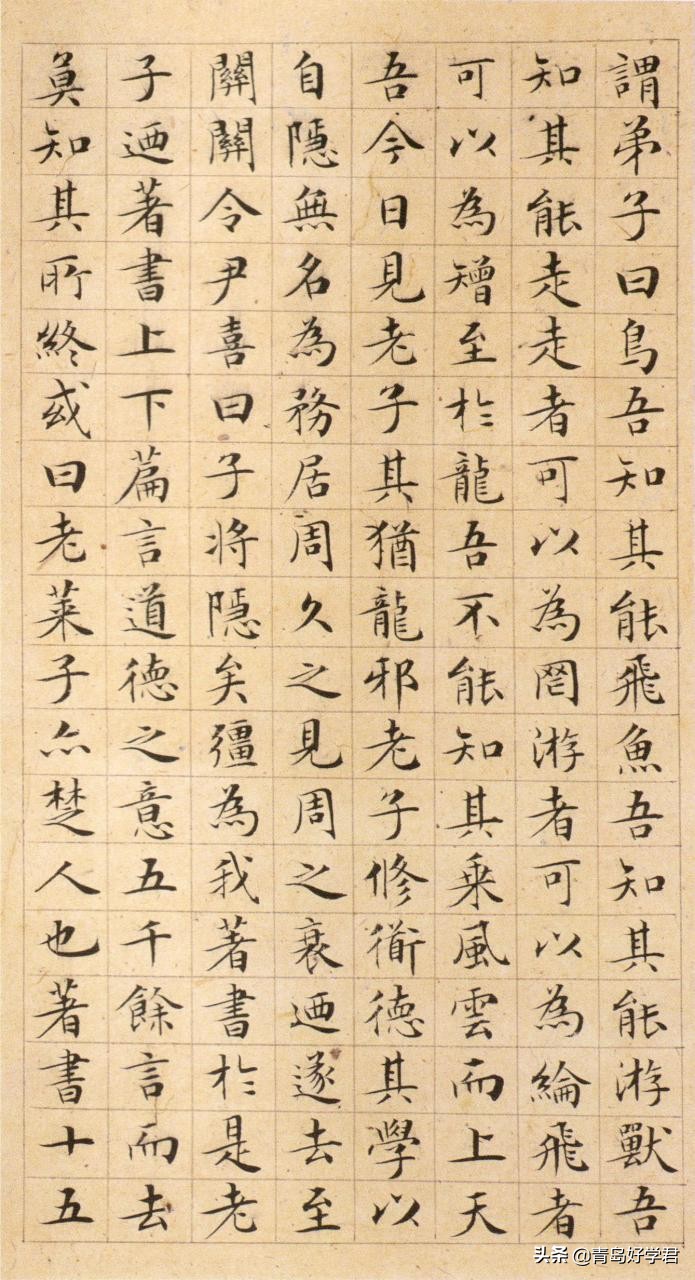 謂弟子曰鳥吾知其能飛魚吾知其能游獸吾
知其能走走者可以為罔游者可以為綸飛者
可以為矰至於龍吾不能知其乗風雲而上天
吾今日見老子其猶龍邪老子修衜德其學以
自隱無名為務居周久之見周之衰迺遂去至
關關令尹喜曰子将隱矣彊為我著書於是老
子迺著書上下篇言道德之意五千餘言而去
莫知其所終或曰老萊子亦楚人也著書十五
头条 @青岛好学君